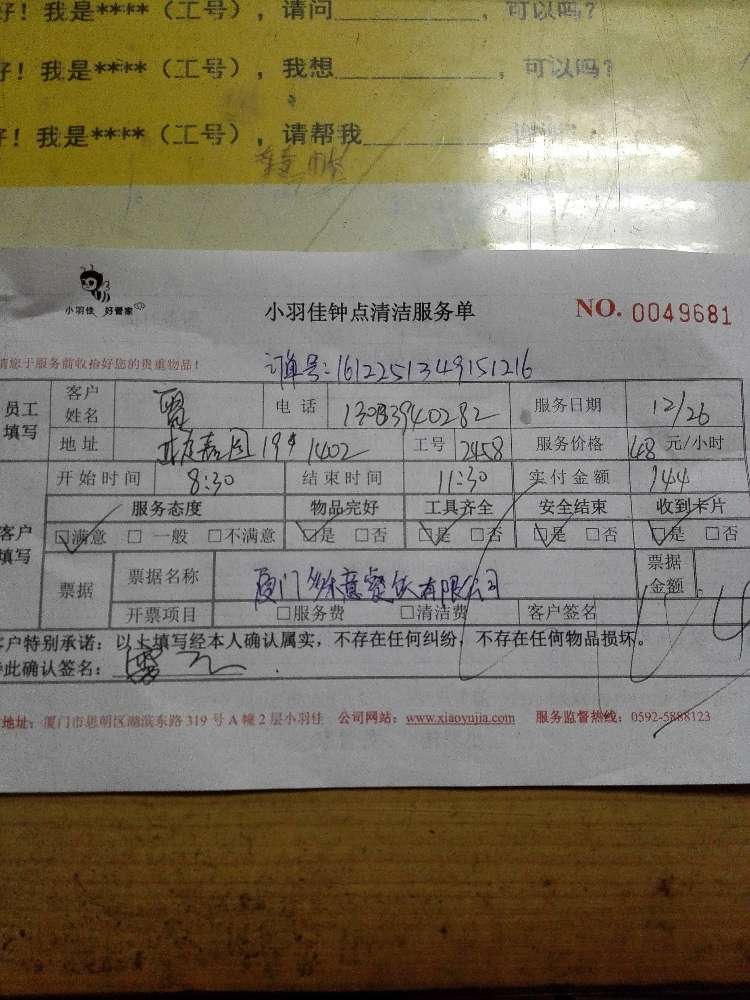 好！我是****（工号），请问__________，可以吗？
好！我是****（工号），我想__________，可以吗？
好！我是****（工号），请帮我__________
小羽佳 好管家
小羽佳钟点清洁服务单
NO. 0049681
请您于服务前收拾好您的贵重物品！
订单号：1612251349151216
员工填写 客户姓名 电话 13083940282 服务日期 12/26
地址 19# 1402 工号 2458 服务价格 48 元/小时
客户填写 开始时间 8:30 结束时间 11:30 实付金额 144
服务态度 物品完好 工具齐全 安全结束 收到卡片
☑满意 □一般 □不满意 ☑是 □否 ☑是 □否 ☑是 □否 ☑是 □否
票据 票据名称 厦门多禾意餐饮有限公司 票据金额
开票项目 □服务费 □清洁费 客户签名
客户特别承诺：以上填写经本人确认属实，不存在任何纠纷，不存在任何物品损坏。
特此确认签名：
地址：厦门市思明区湖滨东路 319 号 A 幢 2 层小羽佳 公司网站：www.xiaoyujia.com 服务监督热线：0592-5888123